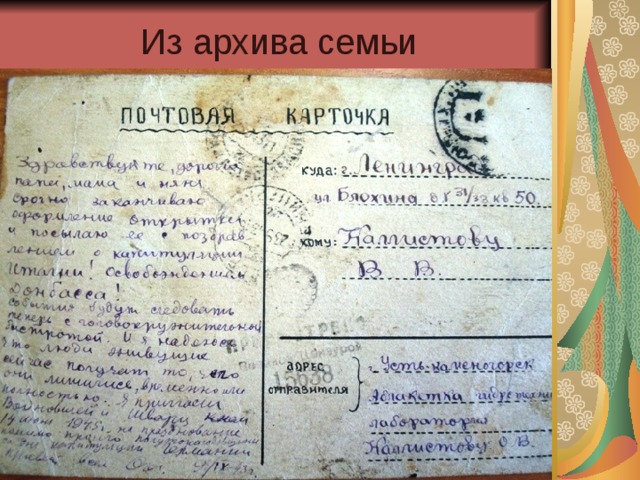 Из архива семьи
ПОЧТОВАЯ КАРТОЧКА
Здравствуйте, дорогие
папа, мама и няня
срочно заканчиваю
оформление открытки
и посылаю ее с поздрав
лением о капитуляции
Италии! Освобождении
Донбасса!
события будут следовать
теперь с головокружительной
быстротой. И я надеюсь
что люди живущие
сейчас получат то, чего
они лишились, временно или
полностью. Я пригласил
19 1945г. на празднование
капитуляции Германии
куда: г. Ленинград
ул Блохина д № 31/33 кв 50.
кому: Каллистову
В В.
адрес отправителя
Усть-каменогорск
лаборатория
Каллистову О.В.